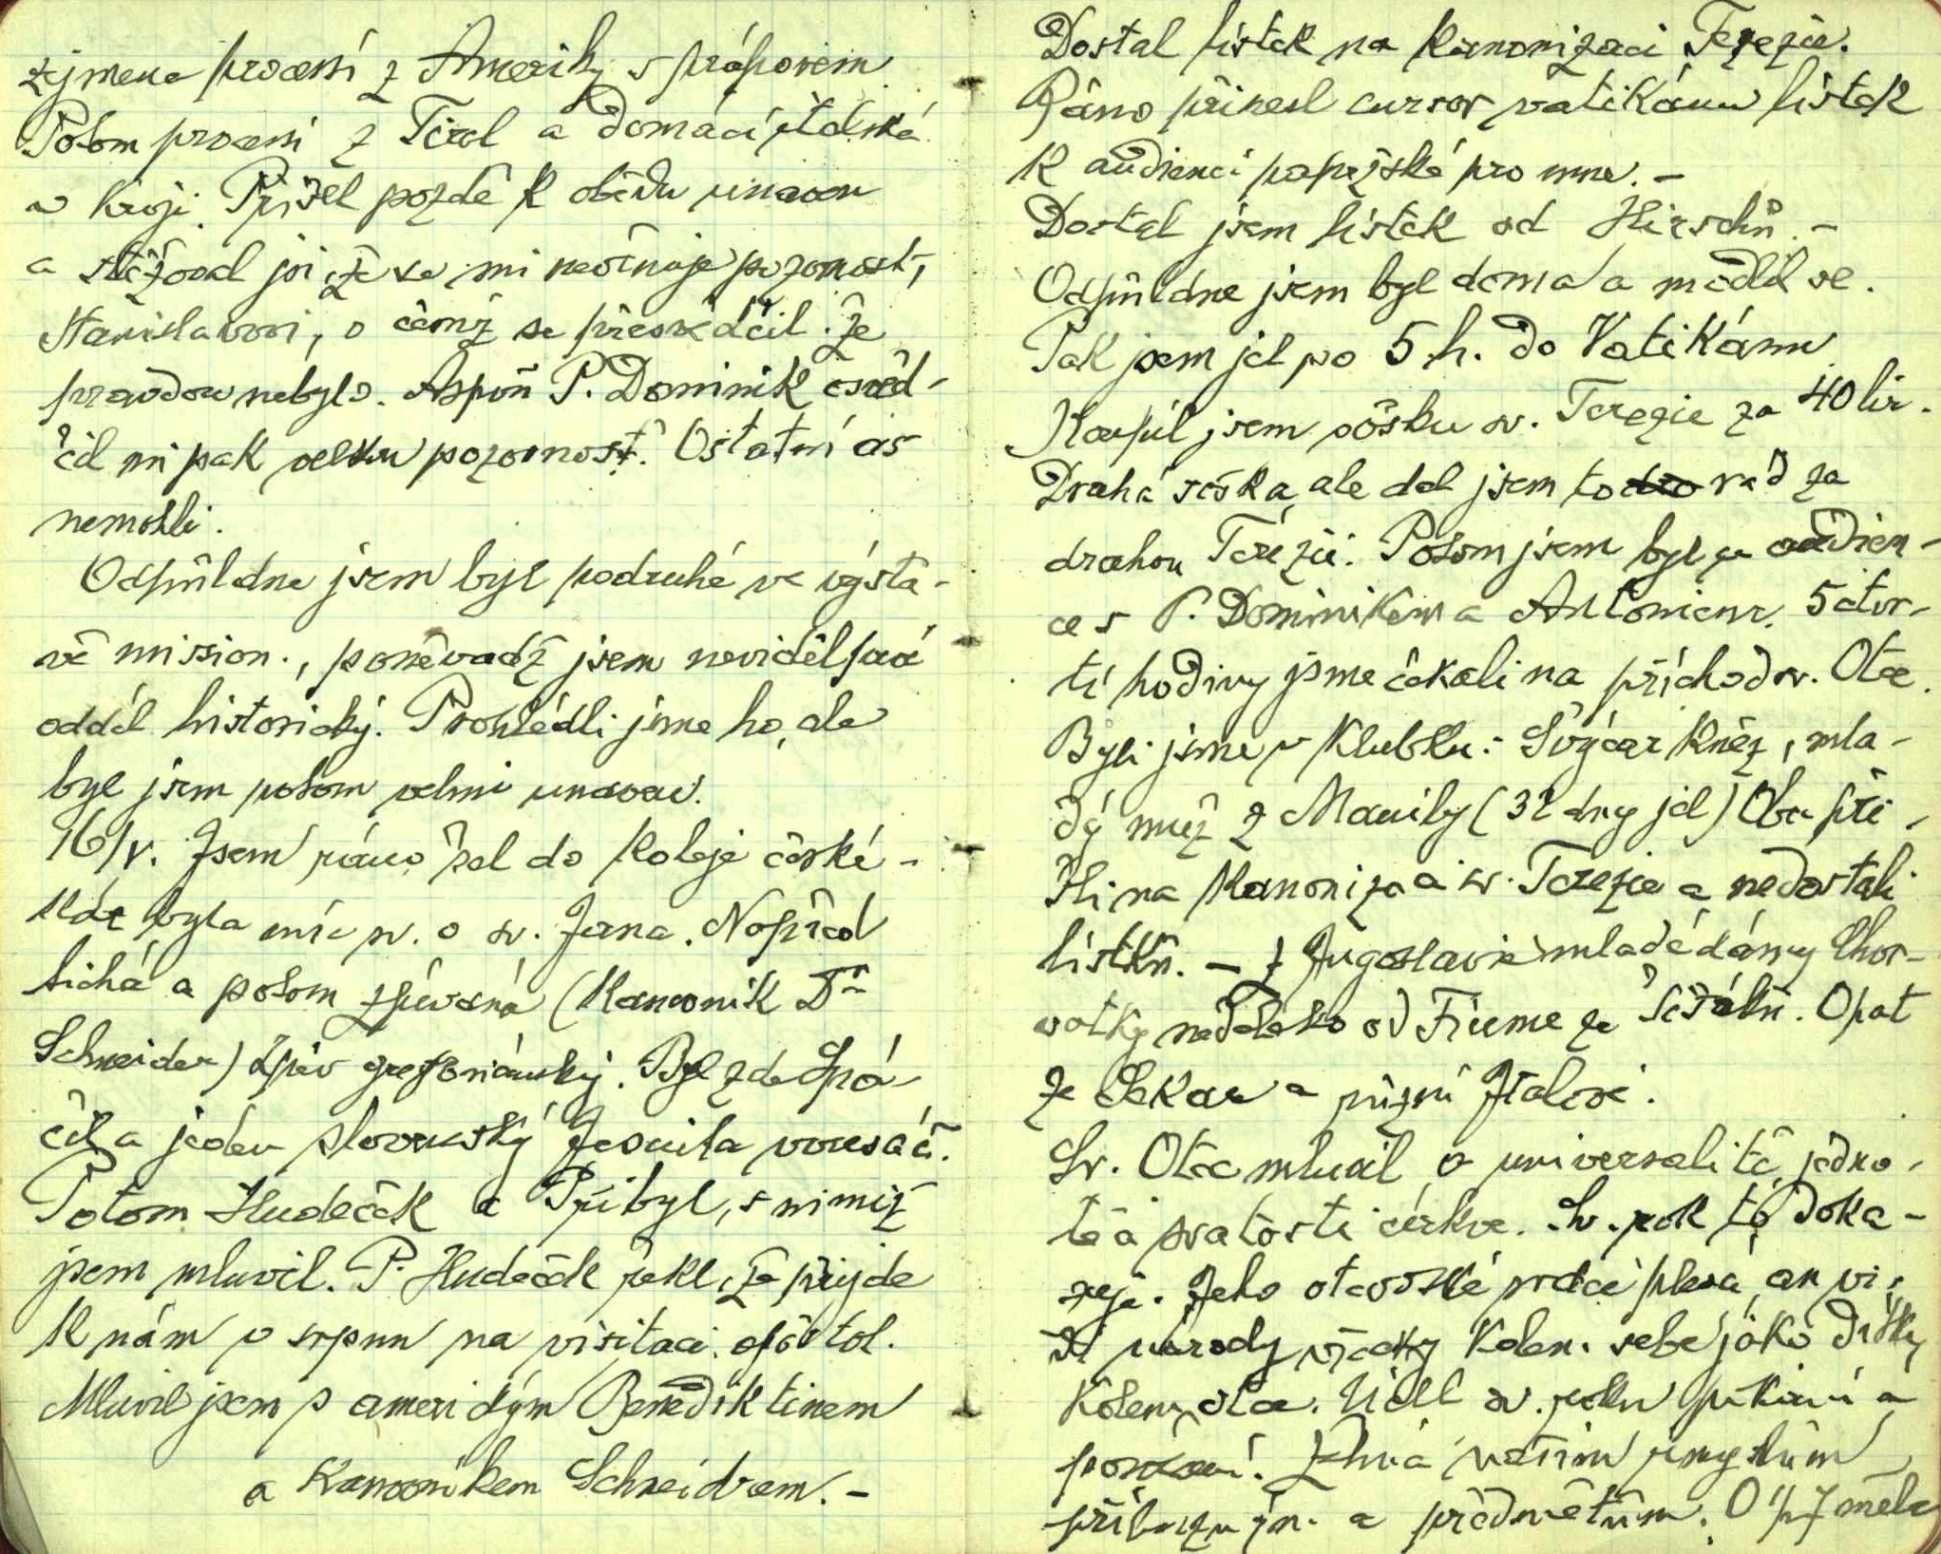 zejmena procesí z Ameriky s práporem
Potom procesí z Tirol a domácí italská
v kroji. Přišel pozdě k obědu unaven
a stěžoval si, že se mi nevěnuje pozornost,
Stanislavovi, o čemž se přesvědčil že
pravdou nebylo. Aspoň P. Dominik osvěd-
čil mi pak velkou pozornost. Ostatní as
nemohli.
Odpůldne jsem byl podruhé ve výsta-
vě mission., poněvadž jsem neviděl prvé
odděl. historický. Prohlédli jsme ho, ale
byl jsem potom velmi unaven.
16/V. Jsem ráno šel do koleje české-
kde byla mše sv. o sv. Jana. Napřed
tichá a potom zpívaná (Kanovník Dr
Schneider) zpěv gregoriánský. Byl zde Spá-
čil a jeden slovenský Jesuita vousáč.
Potom Hudeček a Přibyl, s nimiž
jsem mluvil. P. Hudeček řekl, že přijde
k nám v srpnu na visitaci apoštol.
Mluvil jsem s americkým Benediktinem
a Kanovníkem Schneidrem. -
Dostal lístek na kanonizaci Terezie.
Ráno přinesl cursor vatikánu lístek
k audienci papežské pro mne. -
Dostal jsem lístek od Hirschů. -
Odpůldne jsem byl doma a modlil se.
Pak jsem jel po 5 h. do Vatikánu
Koupil jsem sošku sv. Terezie za 40 lir.
Drahá soška, ale dal jsem to rád za
drahou Terezii. Potom jsem byl v audien-
ce s P. Dominikem a Antoniem. 5 čtvr-
tí hodiny jsme čekali na příchod sv. Otce.
Byli jsme v klubku: Švýcar kněz, mla-
dý muž z Manily (32 dny jel) Oba při-
šli na kanonizaci sv. Terezie a nedostali
lístků. - Z Jugoslavie mladé dámy Chor-
vatky nedaleko od Fiume ze Sušáku. Opat
ze Sekau a různí Italové.
Sv. Otec mluvil o universalitě, jedno-
tě a svatosti církve. Sv. rok to doka-
zuje. Jeho otcovské srdce plesá, an vi-
dí národy všecky kolem sebe jako dítky
kolem otce. Účel sv. roku pokání a
posvěcení. Žehná vašim úmyslům
příbuzným a předmětům. O ½7 měla